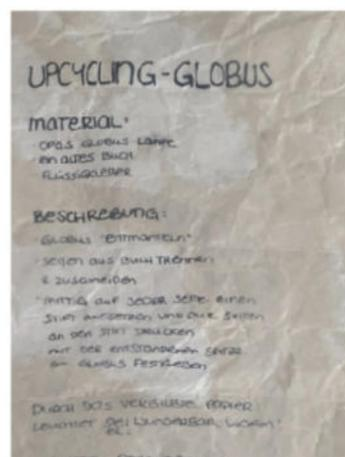 UPCYCLING-GLOBUS
MATERIAL:
· OPAS GLOBUS LAMPE
· EIN ALTES BUCH
· FLÜSSIGKLEBER
BESCHREIBUNG:
· GLOBUS "ENTMANTELN"
· SEITEN AUS BUCH TRENNEN
& ZUSCHNEIDEN
· MITTIG AUF JEDER SEITE EINEN
STIFT ANSETZEN UND DIE SEITEN
AN DEN STIFT DRÜCKEN
MIT DER ENTSTANDENEN SPITZE
AM GLOBUS FESTKLEBEN
DURCH DAS VERGILBTE PAPIER
LEUCHTET WUNDERBAR